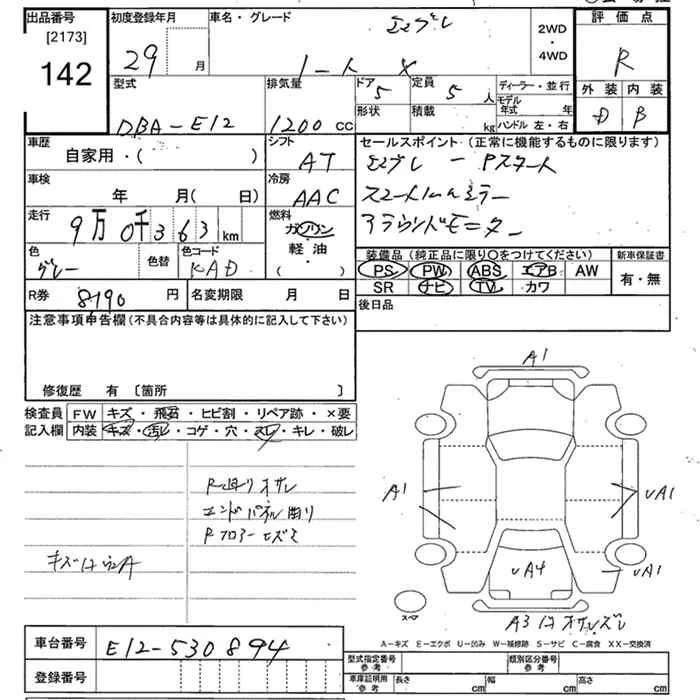 出品番号
[2173]
142
初度登録年月
29 月
車名・グレード
エマブレ
ノート X
2WD
・
4WD
評価点
R
外装 内装
D B
型式
DBA-E12
排気量
1200 cc
ドア 5
定員 5 人
形状
積載 kg
ディーラー・並行
モデル年式 年
ハンドル 左・右
車歴
自家用・( )
シフト
AT
セールスポイント(正常に機能するものに限ります)
エマブレ ー Pスタート
スマートルームミラー
アラウンドモニター
車検
年 月( 日)
冷房
AAC
走行
9万0千363km
燃料
ガソリン
軽・油
( )
色
グレー
色替
色コード
KAD
装備品(純正品に限り○をつけてください)
新車保証書
PS PW ABS エアB AW
SR ナビ TV カワ
有・無
R券 8190 円
名変期限 月 日
後日品
注意事項申告欄(不具合内容等は具体的に記入して下さい)
修復歴 有 〔箇所 〕
検査員 FW キズ・飛石・ヒビ割・リペア跡・×要
記入欄 内装 キズ・汚レ・コゲ・穴・スレ・キレ・破レ
R廻りオサレ
エンドパネル曲り
Rフロアーヒズミ
A1
A1
UA1
UA1
UA4
スペア
A3
車台番号 E12-530894
登録番号
A-キズ E-エクボ U-凹み W-補修跡 S-サビ C-腐食 XX-交換済
型式指定番号 参考
類別区分番号 参考
車庫証明用 参考
長さ cm 幅 cm 高さ cm